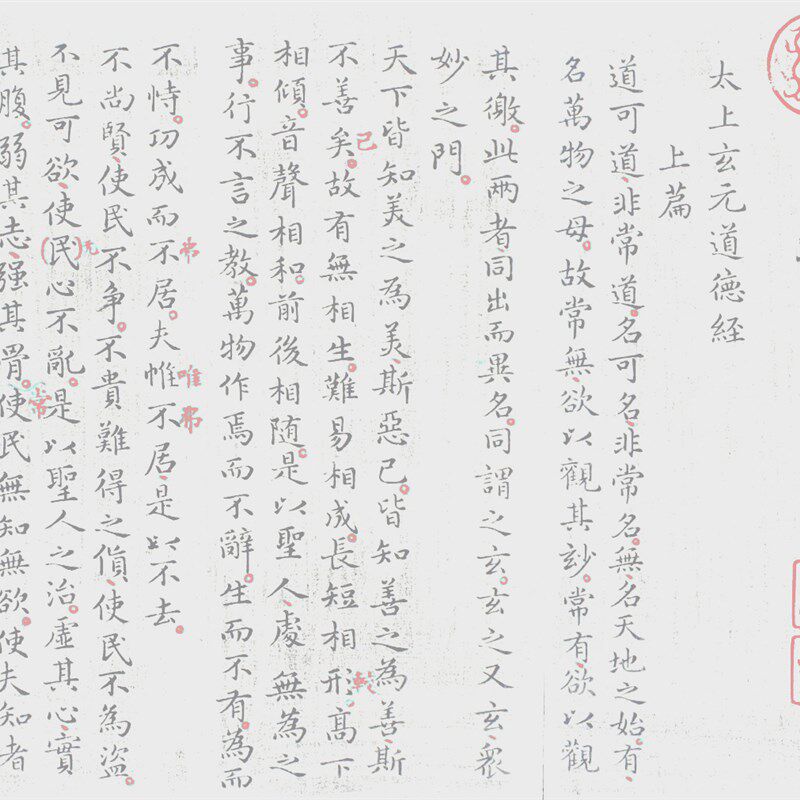 太上玄元道德經
上篇
道可道、非常道。名可名、非常名。無、名天地之始。有、
名萬物之母。故常無、欲以觀其玅。常有、欲以觀
其徼。此兩者同出而異名。同謂之玄。玄之又玄、衆
妙之門。
天下皆知美之為美、斯惡已。皆知善之為善、斯
不善矣。故有無相生。難易相成。長短相形。高下
相傾。音聲相和。前後相隨。是以聖人、處無為之
事。行不言之教。萬物作焉而不辭。生而不有。為而
不恃。功成而不居。夫惟不居、是以不去。
不尚賢、使民不争。不貴難得之貨、使民不為盜。
不見可欲、使(民)心不亂。是以聖人之治。虛其心、實
其腹。弱其志、强其骨。使民無知無欲。使夫知者
已
較
弗
唯弗
无
常